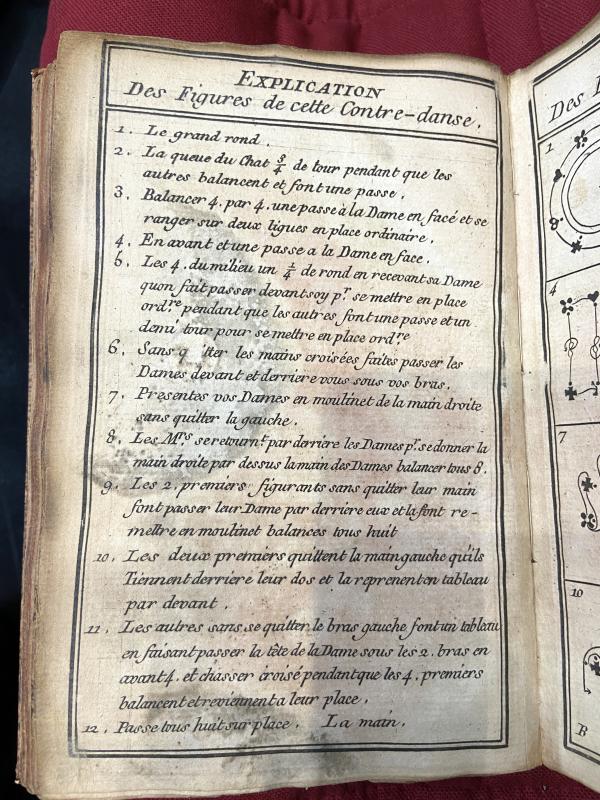 EXPLICATION
Des Figures de cette Contre-danse.
1. Le grand rond.
2. La queue du Chat 3/4 de tour pendant que les
autres balancent et font une passe.
3. Balancer 4. par 4. une passe à la Dame en facé et se
ranger sur deux lignes en place ordinaire.
4. En avant et une passe a la Dame en face.
5. Les 4. du milieu un 1/4 de rond en recevant sa Dame
quon fait passer devant soy pr. se mettre en place
ordre. pendant que les autres font une passe et un
demi tour pour se mettre en place ordre
6. Sans q tter les mains croisées faites passer les
Dames devant et derriere vous sous vos bras.
7. Presentes vos Dames en moulinet de la main droite
sans quitter la gauche.
8. Les Mrs. se retournt. par derriere les Dames pr. se donner la
main droite par dessus la main des Dames balancer tous 8.
9. Les 2. premiers figurants sans quitter leur main
font passer leur Dame par derriere eux et la font re-
mettre en moulinet balances tous huit
10. Les deux premiers quittent la main gauche qu'ils
Tiennent derriere leur dos et la reprenent en tableau
par devant.
11. Les autres sans se quitter le bras gauche font un tableau
en faisant passer la tête de la Dame sous les 2. bras en
avant 4. et chasser croisé pendant que les 4. premiers
balancent et reviennent a leur place.
12. Passe tous huit sur place. La main.
Des
1
4
7
10
R